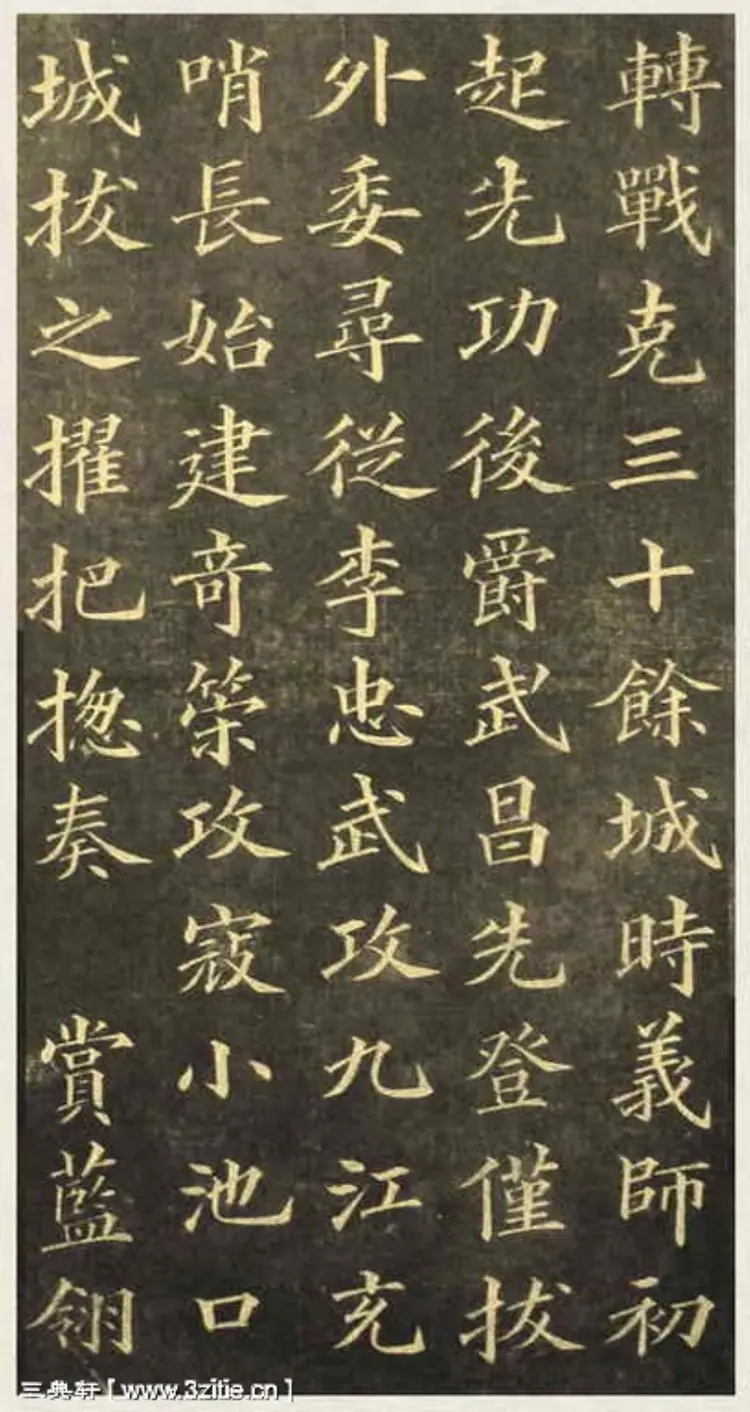 轉戰克三十餘城時義師初
起先功後爵武昌先登僅拔
外委尋從李忠武攻九江充
哨長始建奇策攻寇小池口
城拔之擢把揔奏　賞藍翎
三典轩[www.3zitie.cn]